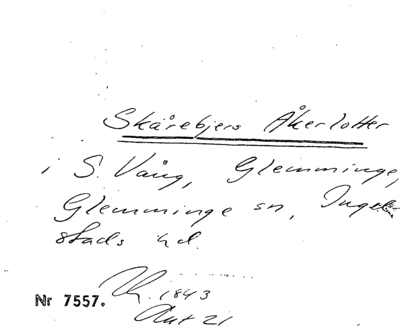 Skårebjers Åkerlotter
i S. Vång, Glemminge,
Glemminge sn, Ingel-
stads hd.
Nr 7557. 1843
Akt 21